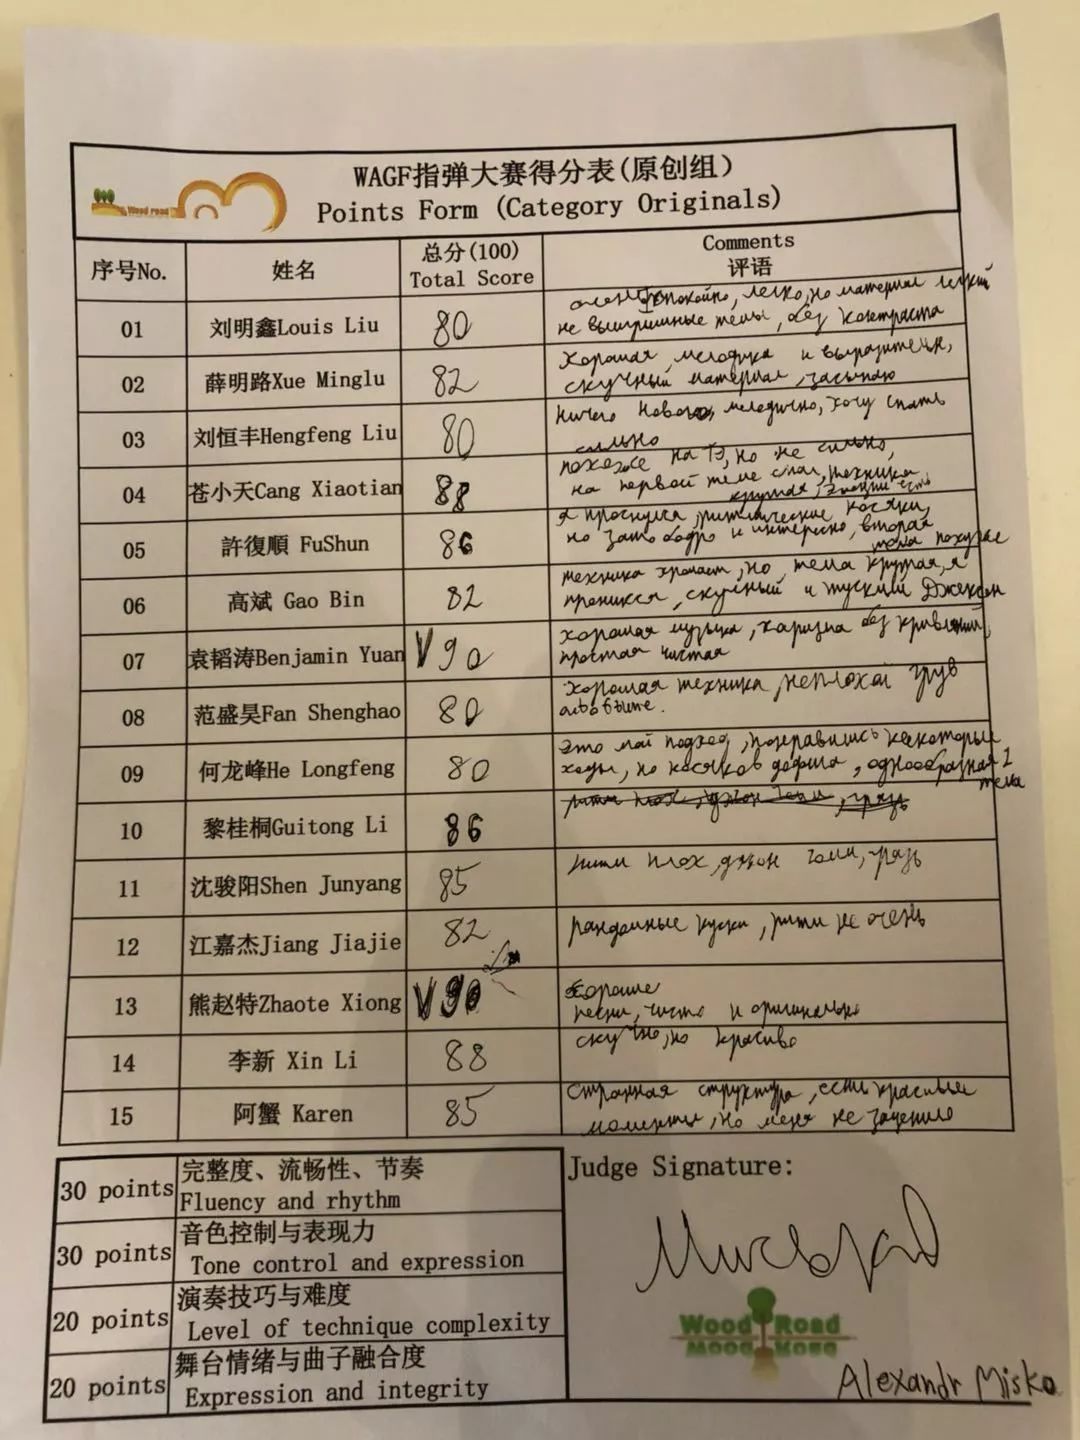 WAGF指弹大赛得分表(原创组)
Wood road
Points Form (Category Originals)
序号No. 姓名 总分(100) Total Score Comments 评语
01 刘明鑫Louis Liu 80
спокойно, легко, но материал легкий
не выигрышные темы, без контраста
02 薛明路Xue Minglu 82
Хорошая мелодика и
скучный материал, засыпаю
03 刘恒丰Hengfeng Liu 80
Ничего нового, мелодично, хочу спать
сильно
04 苍小天Cang Xiaotian 88
похоже на ТЭ, но не сильно,
на первой теме спал, техника
крутая, эмоции есть
05 許復順 FuShun 86
я проснулся, ритмические косяки,
но зато бодро и интересно, вторая
тема похуже
06 高斌 Gao Bin 82
техника хромает, но тема крутая, я
проникся, скучный и тусклый Джексон
07 袁韬涛Benjamin Yuan V 90
хорошая музыка, харизма без кривляний,
простая чистая
08 范盛昊Fan Shenghao 80
Хорошая техника, неплохой грув
09 何龙峰He Longfeng 80
это мой подход, понравились некоторые
ходы, но косяков дофига, однообразная 1
тема
10 黎桂桐Guitong Li 86
ритм плох, джон гомм, грязь
11 沈骏阳Shen Junyang 85
ритм плох, джон гомм, грязь
12 江嘉杰Jiang Jiajie 82
рандомные куски, ритм не очень
13 熊赵特Zhaote Xiong V 90
Хорошие
песни, чисто и оригинально
14 李新 Xin Li 88
скучно, но красиво
15 阿蟹 Karen 85
Странная структура, есть красивые
моменты, но меня не зацепило
30 points 完整度、流畅性、节奏
Fluency and rhythm
30 points 音色控制与表现力
Tone control and expression
20 points 演奏技巧与难度
Level of technique complexity
20 points 舞台情绪与曲子融合度
Expression and integrity
Judge Signature:
Wood Road
Alexandr Misko